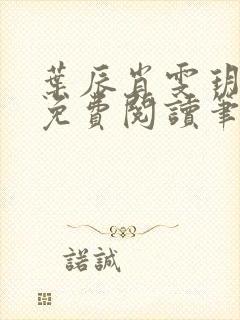 葉辰肖雯玥
免費閱讀筆
諾誠